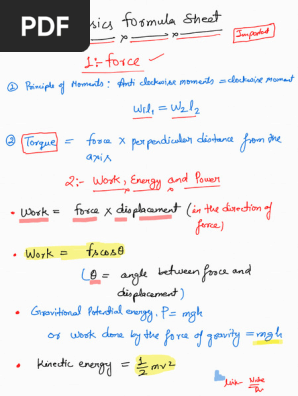 PDF
Physics Formula Sheet
Important
1:- force ✓
① Principle of Moments: Anti clockwise moments = clockwise moment
W₁l₁ = W₂l₂
② Torque = force × perpendicular distance from the
axis
2:- Work, Energy and Power
• Work = force × displacement (in the direction of
force)
• Work = fscosθ
(θ = angle between force and
displacement)
• Gravitional Potential energy, P = mgh
or work done by the force of gravity = mgh
• Kinetic energy = 1/2 mv²